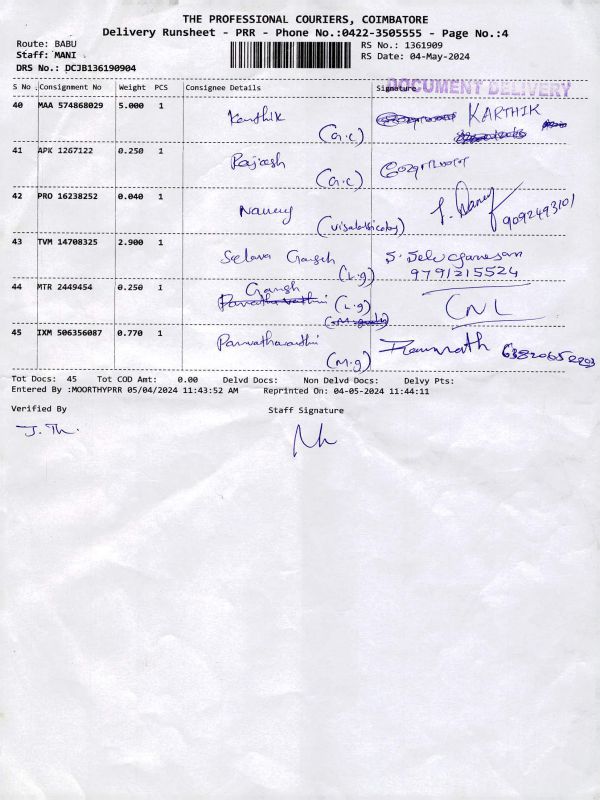 THE PROFESSIONAL COURIERS, COIMBATORE
Delivery Runsheet - PRR - Phone No.:0422-3505555 - Page No.:4
Route: BABU RS No.: 1361909
Staff: MANI RS Date: 04-May-2024
DRS No.: DCJB136190904
DOCUMENT DELIVERY
S No Consignment No Weight PCS Consignee Details Signature
40 MAA 574868029 5.000 1 Karthik KARTHIK
(G.C)
41 APK 1267122 0.250 1 Rajesh
(G.C)
42 PRO 16238252 0.040 1 Nancy 9092493101
43 TVM 14708325 2.900 1 Selava Ganesh S. Selvaganesan
(L.g) 9791215524
44 MTR 2449454 0.250 1 Gansh
(L.g) CNL
45 IXM 506356087 0.770 1 Parvathavardhi
(M.g)
Tot Docs: 45 Tot COD Amt: 0.00 Delvd Docs: Non Delvd Docs: Delvy Pts:
Entered By :MOORTHYPRR 05/04/2024 11:43:52 AM Reprinted On: 04-05-2024 11:44:11
Verified By Staff Signature